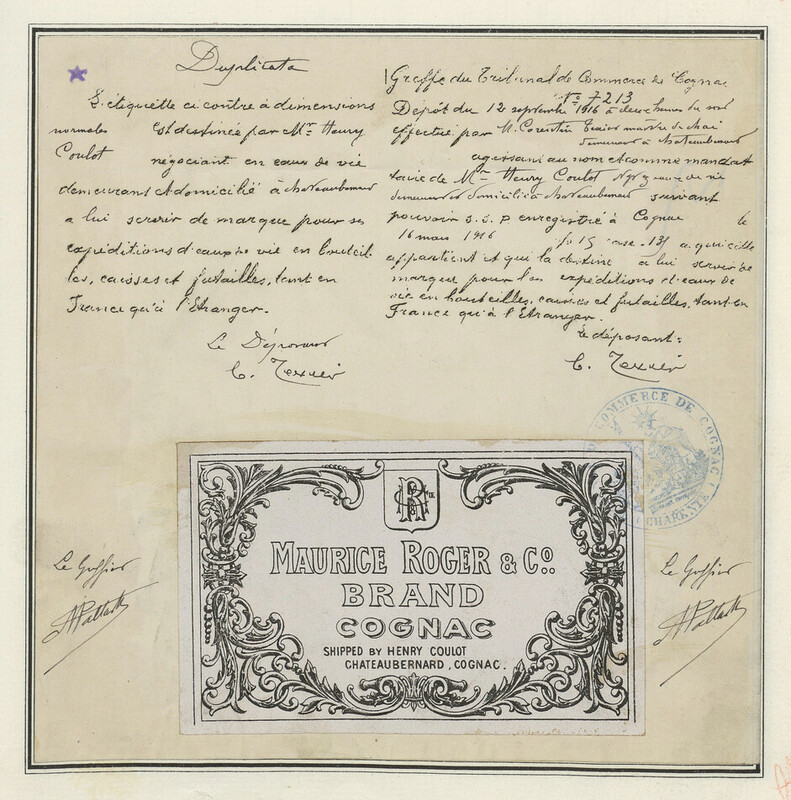 Duplicata
L'étiquette ci contre à dimensions
normales est destinée par Mr Henry
Coulot négociant en eaux de vie
demeurant et domicilié à chateaubernard
a lui servir de marque pour ses
expéditions d'eaux de vie en bouteil
les, caisses et futailles, tant en
France qu'à l'Etranger.
Le Déposant
C. Texier
Greffe du Tribunal de Commerce de Cognac
No 7213
Dépôt du 12 septembre 1916 à deux heures du soir
effectué par M. Corentin Texier maître de chai
demeurant à chateaubernard
agissant au nom et comme mandat
taire de Mr Henry Coulot Négt en eaux de vie
demeurant et domicilié à chateaubernard suivant
pouvoir s. s. p enregistré à Cognac le
16 mars 1916 fo 15 case 131 a qui elle
appartient et qui la destine a lui servir de
marque pour les expéditions d'eaux de
vie en bouteilles, caisses et futailles, tant en
France qu'à l'Etranger.
Le déposant:
C. Texier
COMMERCE DE COGNAC
CHARENTE
Le Greffier
Le Greffier
MAURICE ROGER & Co.
BRAND
COGNAC
SHIPPED BY HENRY COULOT
CHATEAUBERNARD, COGNAC.